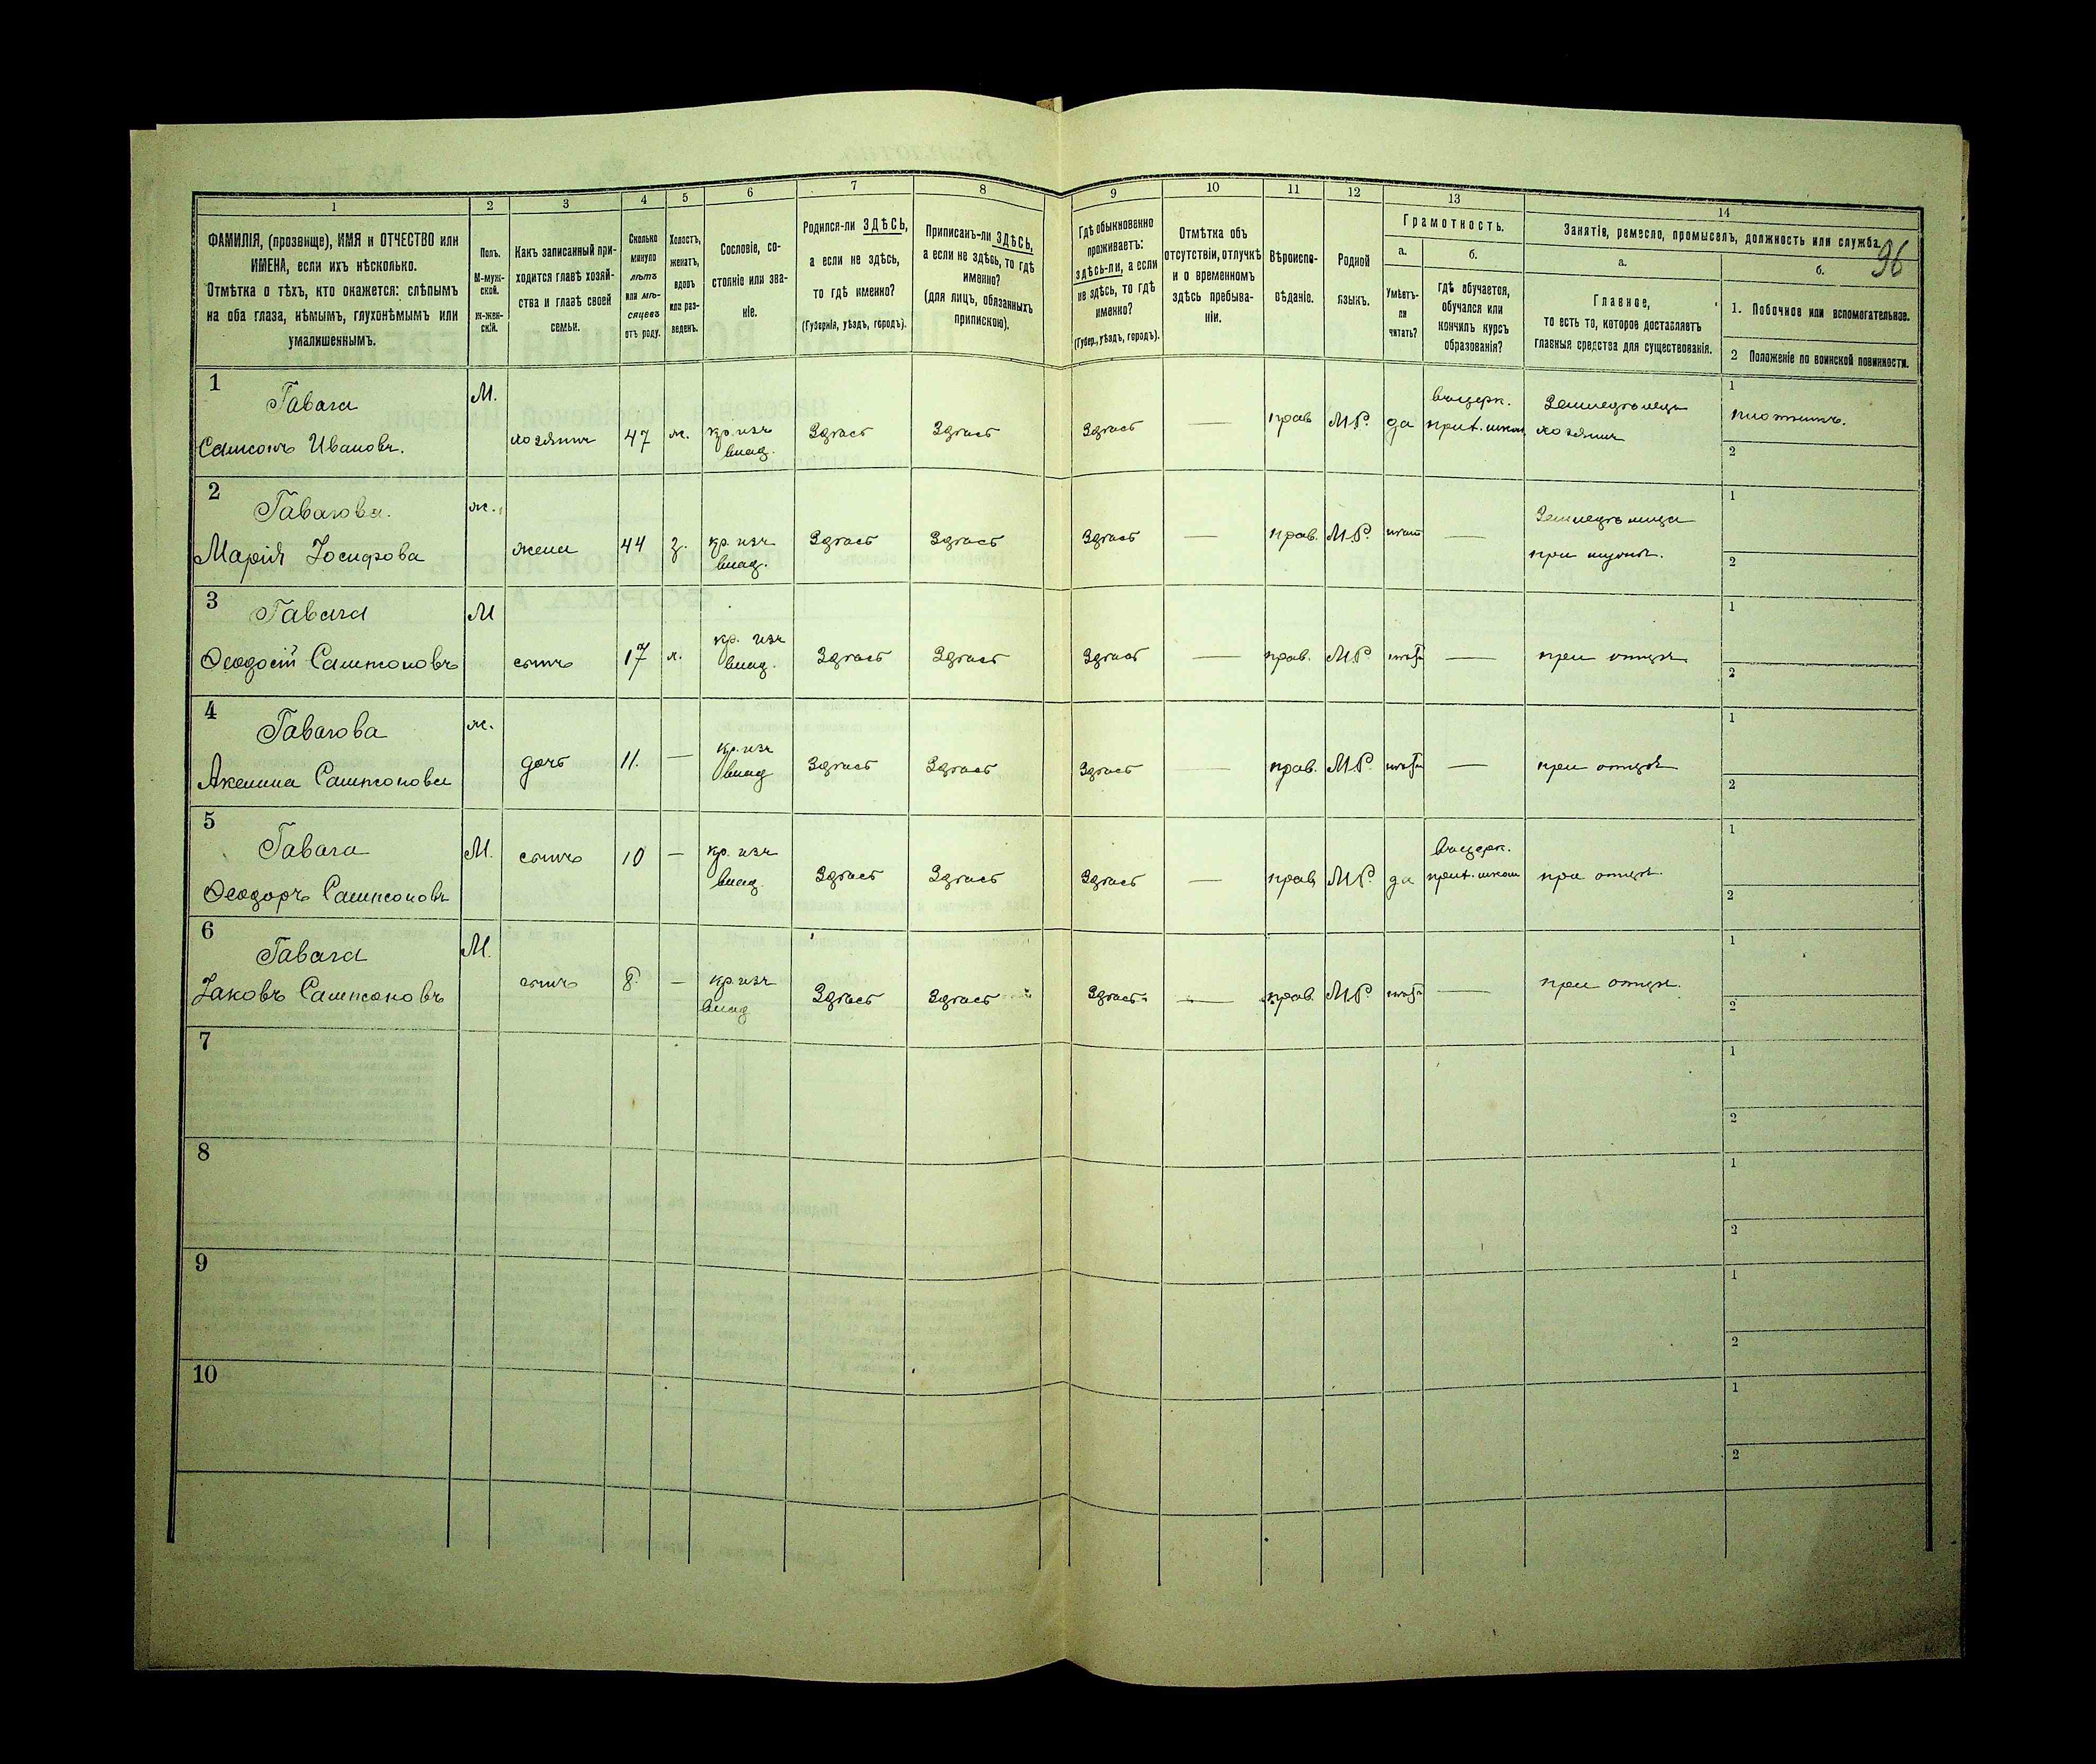 96
1 2 3 4 5 6 7 8 9 10 11 12 13 14
ФАМИЛІЯ, (прозвище), ИМЯ и ОТЧЕСТВО или
ИМЕНА, если ихъ нѣсколько.
Отмѣтка о тѣхъ, кто окажется: слѣпымъ
на оба глаза, нѣмымъ, глухонѣмымъ или
умалишеннымъ.
Полъ.
М-муж-
ской.
ж-жен-
скій.
Какъ записанный при-
ходится главѣ хозяй-
ства и главѣ своей
семьи.
Сколько
минуло
лѣтъ
или мѣ-
сяцевъ
отъ роду.
Холостъ,
женатъ,
вдовъ
или раз-
веденъ.
Сословіе, со-
стояніе или зва-
ніе.
Родился-ли ЗДѢСЬ,
а если не здѣсь,
то гдѣ именно?
(Губернія, уѣздъ, городъ).
Приписанъ-ли ЗДѢСЬ,
а если не здѣсь, то гдѣ
именно?
(для лицъ, обязанныхъ
припискою).
Гдѣ обыкновенно
проживаетъ:
здѣсь-ли, а если
не здѣсь, то гдѣ
именно?
(Губер., уѣздъ, городъ).
Отмѣтка объ
отсутствіи, отлучкѣ
и о временномъ
здѣсь пребыва-
ніи.
Вѣроиспо-
вѣданіе.
Родной
языкъ.
Грамотность.
а.
Умѣетъ-
ли
читать?
б.
гдѣ обучается,
обучался или
кончилъ курсъ
образованія?
Занятіе, ремесло, промыселъ, должность или служба.
а.
Главное,
то есть то, которое доставляетъ
главныя средства для существованія.
б.
1. Побочное или вспомогательное.
2 Положеніе по воинской повинности.
1
Гавага
Самсонъ Ивановъ.
М. хозяинъ 47 ж. кр. изъ
влад.
Здѣсь Здѣсь Здѣсь — прав М.Р. да
въ церк.
прих. школ
Земледѣлецъ
хозяинъ
1
плотникъ.
2
2
Гавагова.
Марія Іосифова
ж. жена 44 з. кр. изъ
влад.
Здѣсь Здѣсь Здѣсь — прав. М.Р. —
Земледѣлица
при мужѣ.
1
2
3
Гавага
Ѳеодосій Сампсоновъ
М сынъ 17 х. кр. изъ
влад.
Здѣсь Здѣсь Здѣсь — прав. М.Р. —
при отцѣ
1
2
4
Гавагова
Акелина Сампсонова
ж. дочь 11. — кр. изъ
влад
Здѣсь Здѣсь Здѣсь — прав. М.Р. —
при отцѣ
1
2
5
Гавага
Ѳеодоръ Сампсоновъ
М. сынъ 10 — кр. изъ
влад.
Здѣсь Здѣсь Здѣсь — прав М.Р. да
въ церк.
прих. школ
при отцѣ.
1
2
6
Гавага
Іаковъ Сампсоновъ
М. сынъ 8. — кр. изъ
влад
Здѣсь Здѣсь Здѣсь — прав. М.Р. —
при отцѣ.
1
2
7
1
2
8
1
2
9
1
2
10
1
2